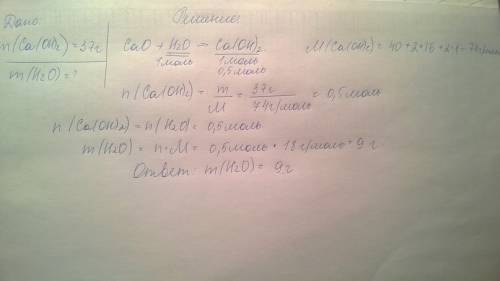 Дано: Решение:
m(Ca(OH)₂) = 37г
m(H₂O) = ?
CaO + H₂O = Ca(OH)₂
1моль 1моль
0,5моль
M(Ca(OH)₂) = 40 + 2·16 + 2·1 = 74г/моль
n(Ca(OH)₂) = m/M = 37г/74г/моль = 0,5моль
n(Ca(OH)₂) = n(H₂O) = 0,5моль
m(H₂O) = n·M = 0,5моль · 18г/моль = 9г
Ответ: m(H₂O) = 9г